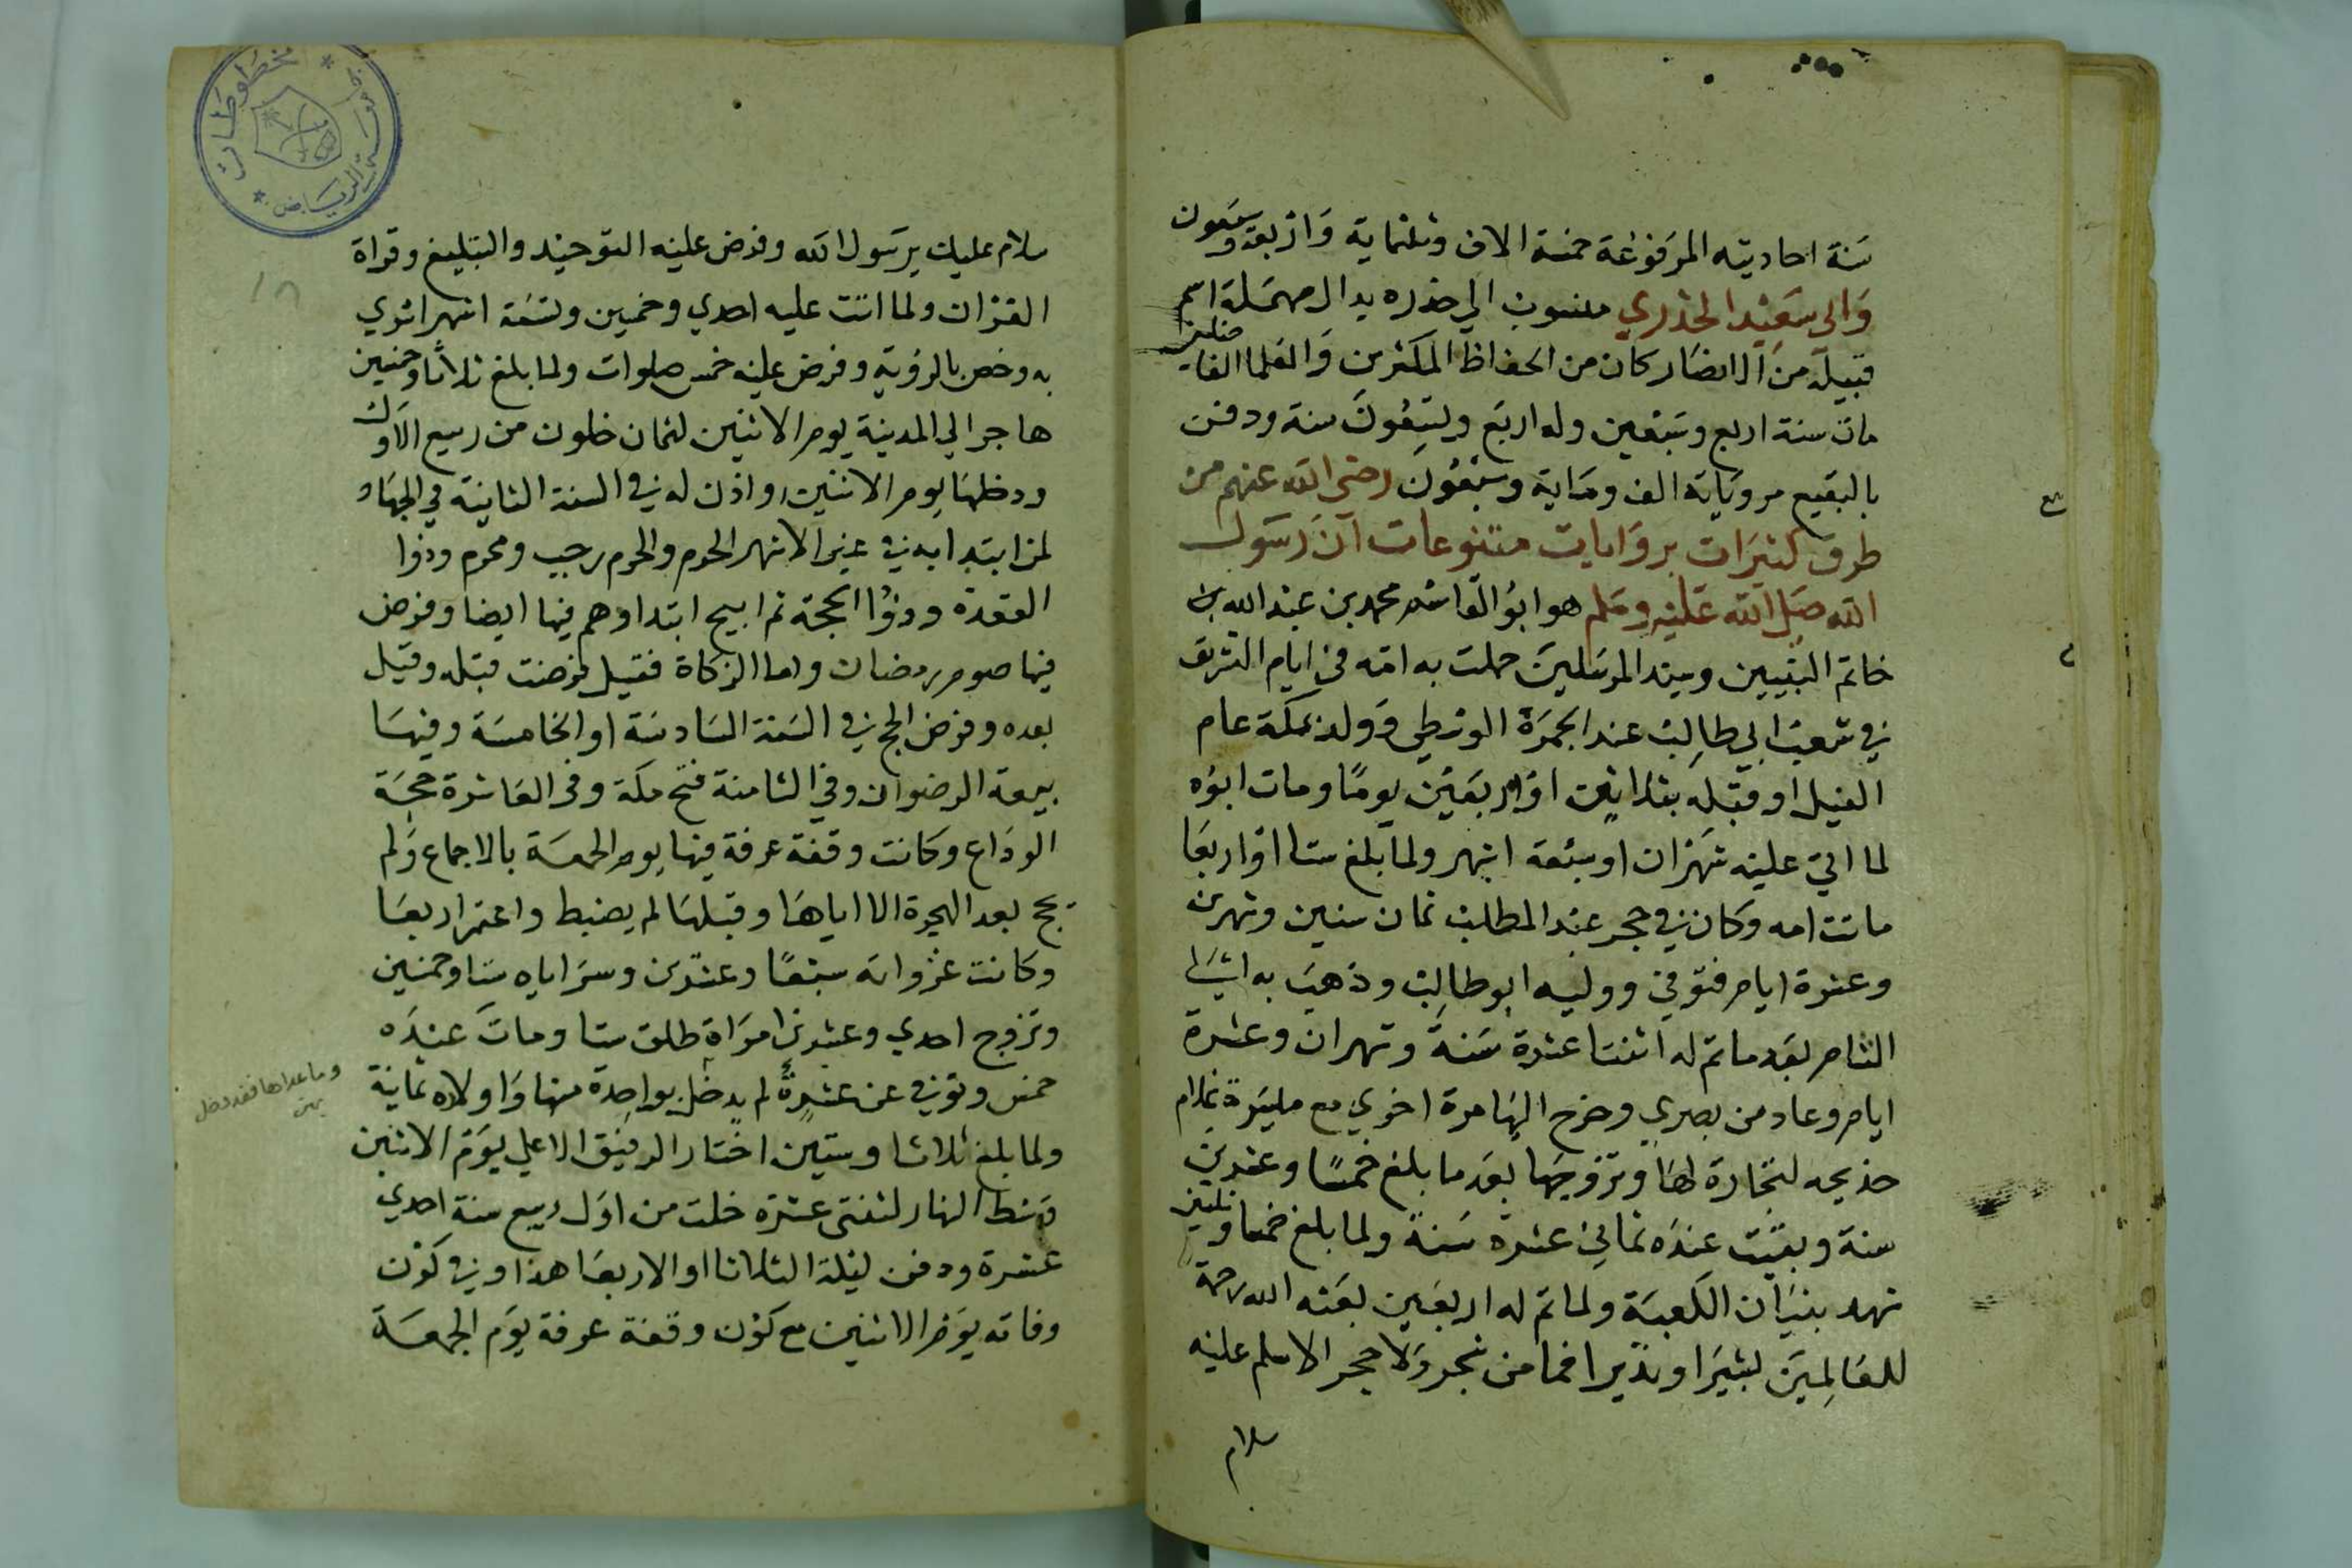 سنة احاديثه المرفوعة خمسة الاف وثلثماية واربعة وسبعون
وابى سعيد الخدري منسوب الى خدره بدال مهملة اسم
قبيلة من الانصار كان من الحفاظ المكثرين والعلما الفا
ضلين
مات سنة اربع وسبعين وله اربع وتسعون سنة ودفن
بالبقيع مروياته الف وماية وسبعون رضى الله عنهم من
طرق كثيرات بروايات متنوعات ان رسول
الله صلى الله عليه وسلم هو ابو القاسم محمد بن عبد الله بن
خاتم النبيين وسيد المرسلين حملت به امه في ايام التشريق
في شعب ابي طالب عند الجمرة الوسطي وولد بمكة عام
الفيل او قبله بثلاثين او اربعين يوما ومات ابوه
لما اتي عليه شهران او سبعة اشهر ولما بلغ ستا او اربعا
ماتت امه وكان في حجر عبد المطلب ثمان سنين وشهرين
وعشرة ايام فتوفي ووليه ابو طالب وذهب به الى
الشام بعد ما تم له اثنتا عشرة سنة وشهران وعشرة
ايام وعاد من بصري وخرج اليها مرة اخري مع ميسرة غلام
خديجه لتجارة لها وتزوجها بعد ما بلغ خمسا وعشرين
سنة وبقيت عنده ثماني عشره سنة ولما بلغ خمسا وثلثين
شهد بنيان الكعبة ولما تم له اربعين بعثه الله رحمة
للعالمين بشيرا ونذيرا فما من شجر ولا حجر الا سلم عليه
سلام
سلام عليك يرسول الله وفرض عليه التوحيد والتبليغ وقراة
القران ولما اتت عليه احدي وخمسين وتسعة اشهر اسري
به وخص بالرؤية وفرض عليه خمس صلوات ولما بلغ ثلاثا وخمسين
هاجر الي المدينة يوم الاثنين لثمان خلون من ربيع الاول
ودخلها يوم الاثنين واذن له في السنة الثانية في الجهاد
لمن ابتدا به في غير الاشهر الحرم والحرم رجب ومحرم وذوا
القعدة وذوا الحجة ثم ابيح ابتداوهم فيها ايضا وفرض
فيها صوم رمضان واما الزكاة فقيل فرضت قبله وقيل
بعده وفرض الحج في السنة السادسة او الخامسة وفيها
بيعة الرضوان وفي الثامنة فتح مكة وفي العاشرة حجة
الوداع وكانت وقفة عرفة فيها يوم الجمعة بالاجماع ولم
يحج بعد الهجرة الا اياها وقبلها لم يضبط واعتمر اربعا
وكانت غزواته سبعا وعشرين وسراياه ستا وخمسين
وتزوج احدي وعشرين امراة طلق ستا ومات عنده
خمس وتوفي عن عشرة لم يدخل بواحدة منها واولاده ثمانية
وما عداها فقد دخل
بهن
ولما بلغ ثلاثا وستين اختار الرفيق الاعلي يوم الاثنين
وسط النهار لثنتي عشره خلت من اول ربيع سنة احدي
عشرة ودفن ليلة الثلاثا او الاربعا هذا وفي كون
وفاته يوم الاثنين مع كون وقفة عرفة يوم الجمعة
١٨
مخطوطات
جامعة الرياض